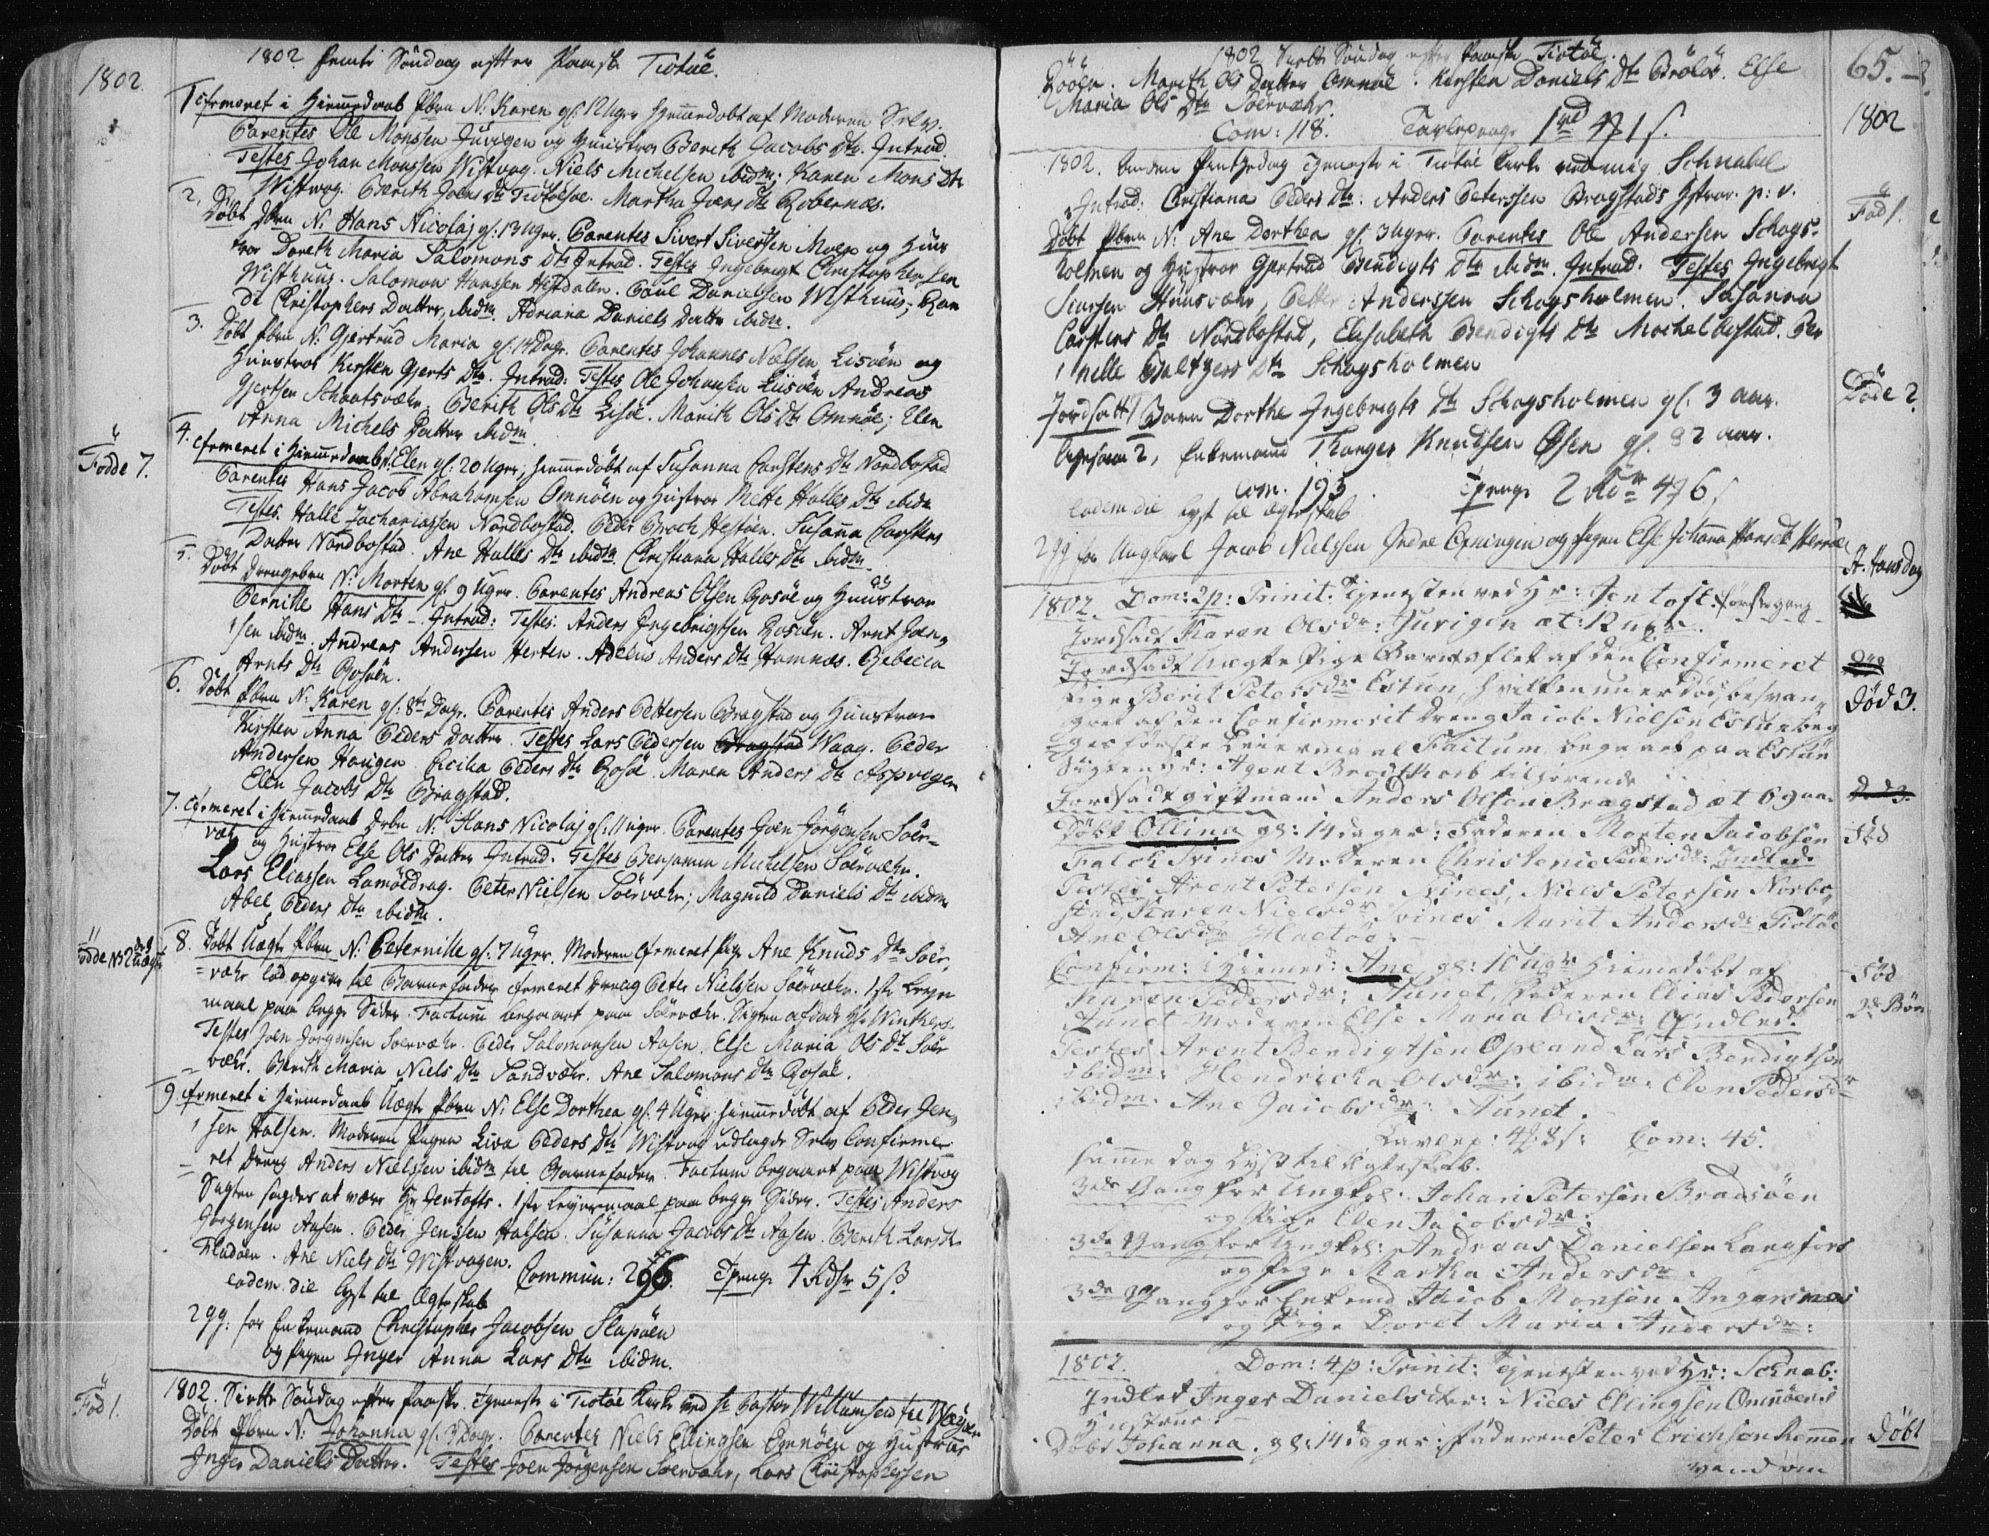 1802.
1802 femte Søndag efter Paaske Tiøtøe.
1 Cfrmeret i Hiemmedaab Pbrn N. Karen gl: 12 Uger hjemmedøbt af Moderen Selv.
Parentes Ole Monssen Juvigen og Hustroe Bereth Jacobs Dtr. Introd.
Testes Johan Monssen Wistvog. Niels Michelsen ibidm; Karen Mons Dtr
Wistvog. Bereth Joens Dtr Tiøtøe. Martha Joens Dtr Røbernæs.
2. Døbt Dbrn N. Hans Nicolaj gl: 13 Uger. Parentes Sivert Sivertsen Moen og Huus
troe Doreth Maria Salomons Dtr Introd. Testes Ingebrigt Christophersen
Wisthuus. Salomon Hanssen Hestdalen. Poul Danielsen Wisthuus; Ran
di Christophers Datter, ibidm. Adriana Daniels Datter ibidm.
3. Døbt Pbrn N. Gjertrud Maria gl. 14 Dage. Parentes Johannes Nielsen Lisøen og
Huustroe Kirsten Gjerts Dtr. Introd: Testes Ole Johansen Liisøen Andreas
Gjertsen Schaatsvæhr. Berith Ols Dtr Lisøe. Marith Ols Dtr Omnøe; Elen
Anna Michels Datter ibidm.
Fødde 7.
4. Cfrmeret i Hiemmedaab Elen gl: 20 Uger, hiemmedøbt af Susanna Carstens Dtr Nordbostad
Parentes Hans Jacob Abrahamsen Omnøen og Hustroe Mette Halles Dtr ibidm
Testes. Halle Zachariassen Nordbostad. Peder Broch Hestøen. Susanna Carstens
Datter Nordbostad. Ane Halles Dtr ibidm Christiana Halles Dtr ibidm.
5. Døbt Drengebrn N: Morten gl. 9 Uger. Parentes Andreas Olsen Rosøe og Huustroe
Pernille Hans Dtr. Introd: Testes. Anders Ingebrigtsen Rosøen. Arnt Joen,
sen ibidm. Andreas Andersen Herten. Adelus Anders Dtr Hamnæs. Rebecca
Arnts Dtr Rosøen.
6. Døbt Pbrn N: Karen gl. 8te Dage. Parentes Anders Pettersen Bragstad og Huustroe
Kirsten Anna Peders Datter. Testes Lars Pedersen Waag. Peder
Andersen Haugen. Cecilia Peders Dtr Rosøe. Maren Anders Dtr Aspvogen
Elen Jacobs Dtr Bragstad.
7. Cfrmeret i Hiemmedaab Drbn N: Hans Nicolaj gl: 11 Uger. Parentes Joen Jørgensen Søer-
væhr og Hustroe Else Ols Datter Introd. Testes Benjamin Michelsen Søervæhr.
Lars Eliassen Lamøedrag. Peter Nielsen Søervæhr; Magnild Daniels Dtr ibidm
Abel Peders Dtr ibidm.
8. Døbt Uægte Pbrn N: Peternille gl. 7 Uger. Moderen Cfrmeret Pige Ane Knuds Dtr Søer,
væhr lod opgive til Barnefader Cfrmeret Dreng Peter Nielsen Søervæhr. 1ste Leyer
maal paa begge Sider. Factum begaaet paa Søervæhr. Sigten afdøde Hr Winthers.
Testes Joen Jørgensen Søervæhr. Peder Salomonsen Aasen. Else Maria Ols Dtr Søer
væhr. Bereth Maria Niels Dtr Sandvæhr. Ane Salomons Dtr Rosøe.
9. Cfrmeret i Hiemmedaab Uægte Pbrn N: Else Dorthea gl. 4 Uger hiemmedøbt af Peder Jen,
sen Halsen. Moderen Pigen Lisa Peders Dtr Wistvog udlagde Selv Confirme
ret Dreng Anders Nielssen ibidm til Barnefader. Factum begaaet paa Wistvog
Sigten sagdes at være Hr Jentofts. 1ste Leyermaal paa begge Sider. Testes Anders
Jørgensen Aasen. Peder Jenssen Halsen. Susanna Jacobs Dtr Aasen. Bereth Lars Dtr
Fladøen. Ane Niels Dtr Wistvogen. Commun: 296. Tpenge 4 Rdlr 5 ß.
eodem die Lyst til Ægteskab
2gg: for Enkemand Christopher Jacobsen Slapøen
og Pigen Inger Anna Lars Dtr ibidm.
Fød 1.
1802. Siette Søndag efter Paaske. Tjeneste i Tiøtøe Kirke ved Hr Pastor Willumsen
Døbt Pbrn N: Johanna gl. 9 Dage. Parentes Niels Ellingsen Omnøen og Hustroe
Inger Daniels Datter. Testes Joen Jørgensen Søervæhr, Lars Christophersen
1802 Siette Søndag efter Paaske Tiøtøe.
65.
Rosøen. Marith Ols Datter Omnøe. Kirsten Daniels Dtr Brøløs. Else
Maria Ols Dtr Søervæhr.
Com: 118. Tavlepenge 1 rd 4 # 1 ß.
1802
1802. Anden Pintzedag Tjeneste i Tiøtøe Kirke ved mig Schnabel
Introd: Christiana Peders Dtr: Anders Peterssen Bragstads Hstroe. p: v.
Fød 1.
Døbt Pbrn N: Ane Dorthea gl. 3 Uger. Parentes Ole Andersen Schogs-
holmen og Hustroe Gjertrud Bendigts Dtr ibidm. Introd. Testes Ingebrigt
Siursen Huusvæhr, Petter Anderssen Schogsholmen. Susanna
Carstens Dtr Nordbostad, Elisabeth Bendigts Dtr Mochelbostad. Per
nelle Baltzers Dtr Schogsholmen
Døde 2.
Jordsatt Barn Dorthe Ingebrigts Dtr Schogsholmen gl. 3 aar.
Enkemand Thorger Knudsen Øsen gl. 82 aar.
Com. 193. Tpenge 2 Rdr 4 # 6 ß
eodem die Lyst til Ægteskab
2gg for Ungkarl Jacob Nielssen Indre Opningen og Pigen Else Johanna
St. Hans dag
1802. Dom: 2 p: Trinit: Tjenesten ved Hr: Jentoft. første gang.
Jordsadt Karen Olsdr: Juvigen æt: 12 Uger.
Jordsadt Uægte Pige Barn aflet af den Confirmeret
Pige Berit Petersdr Estun, hvilken nu er død, besvan,
gret af den Confirmerit Dreng Jacob Nielsen Estun beg
ges første Leiermaal Factum begaaet paa Estun
Sigten Hr: Agent Brodtkorb tilhørende
Død 3.
Jordsadt gift mand Anders Olsen Bragstad æt 69 aar
Døbt Ollina gl: 14 dager: Faderen Morten Jacobsen
Fød
Falch Tvines Moderen Christence Pedersdr: Indled.
Testes Arent Petersen Tvines, Niels Petersen Norbo,
stad, Karen Nielsdr Tvines Marit Andersdr Tiøtøe
Ane Olsdr
Confirm: i Hiemed: Ane gl: 10 Uger Hiemedøbt af
Fød
Karen Pedersdr: Tunet, Faderen Elias Pedersen
2de Børn
Tunet Moderen Else Maria Olsdr: Indled.
Testes Arent Bendigtsen Opland Lars Bendigtsen
ibidm: Hendricka Olsdr: ibidm: Elen Pedersdr
ibidm. Ane Jacobsdr: Tunet.
Tavlep: 4 # 8 ß: Com: 45.
samme dag Lyst til Ægteskab.
3de Gang for Ungkl: Johan Petersen Braasøen
og Pige Elen Jacobsdr:
3de Gang for Ungkl: Andreas Danielsen Langfors
og Pige Martha Andersdr:
3de Gang for Enkemd Jacob Monsen Angersnes
og Pige Doret Maria Andersdr:
1802. Dom: 4 p: Trinit: Tjenesten ved Hr: Schnab:
Indlet Inger Danielsdter: Niels Ellingsen Omnøens
Hustrue:
Døbt Johanna. gl: 14 dager: faderen Peter Erichsen Remen
Døbt
vend om